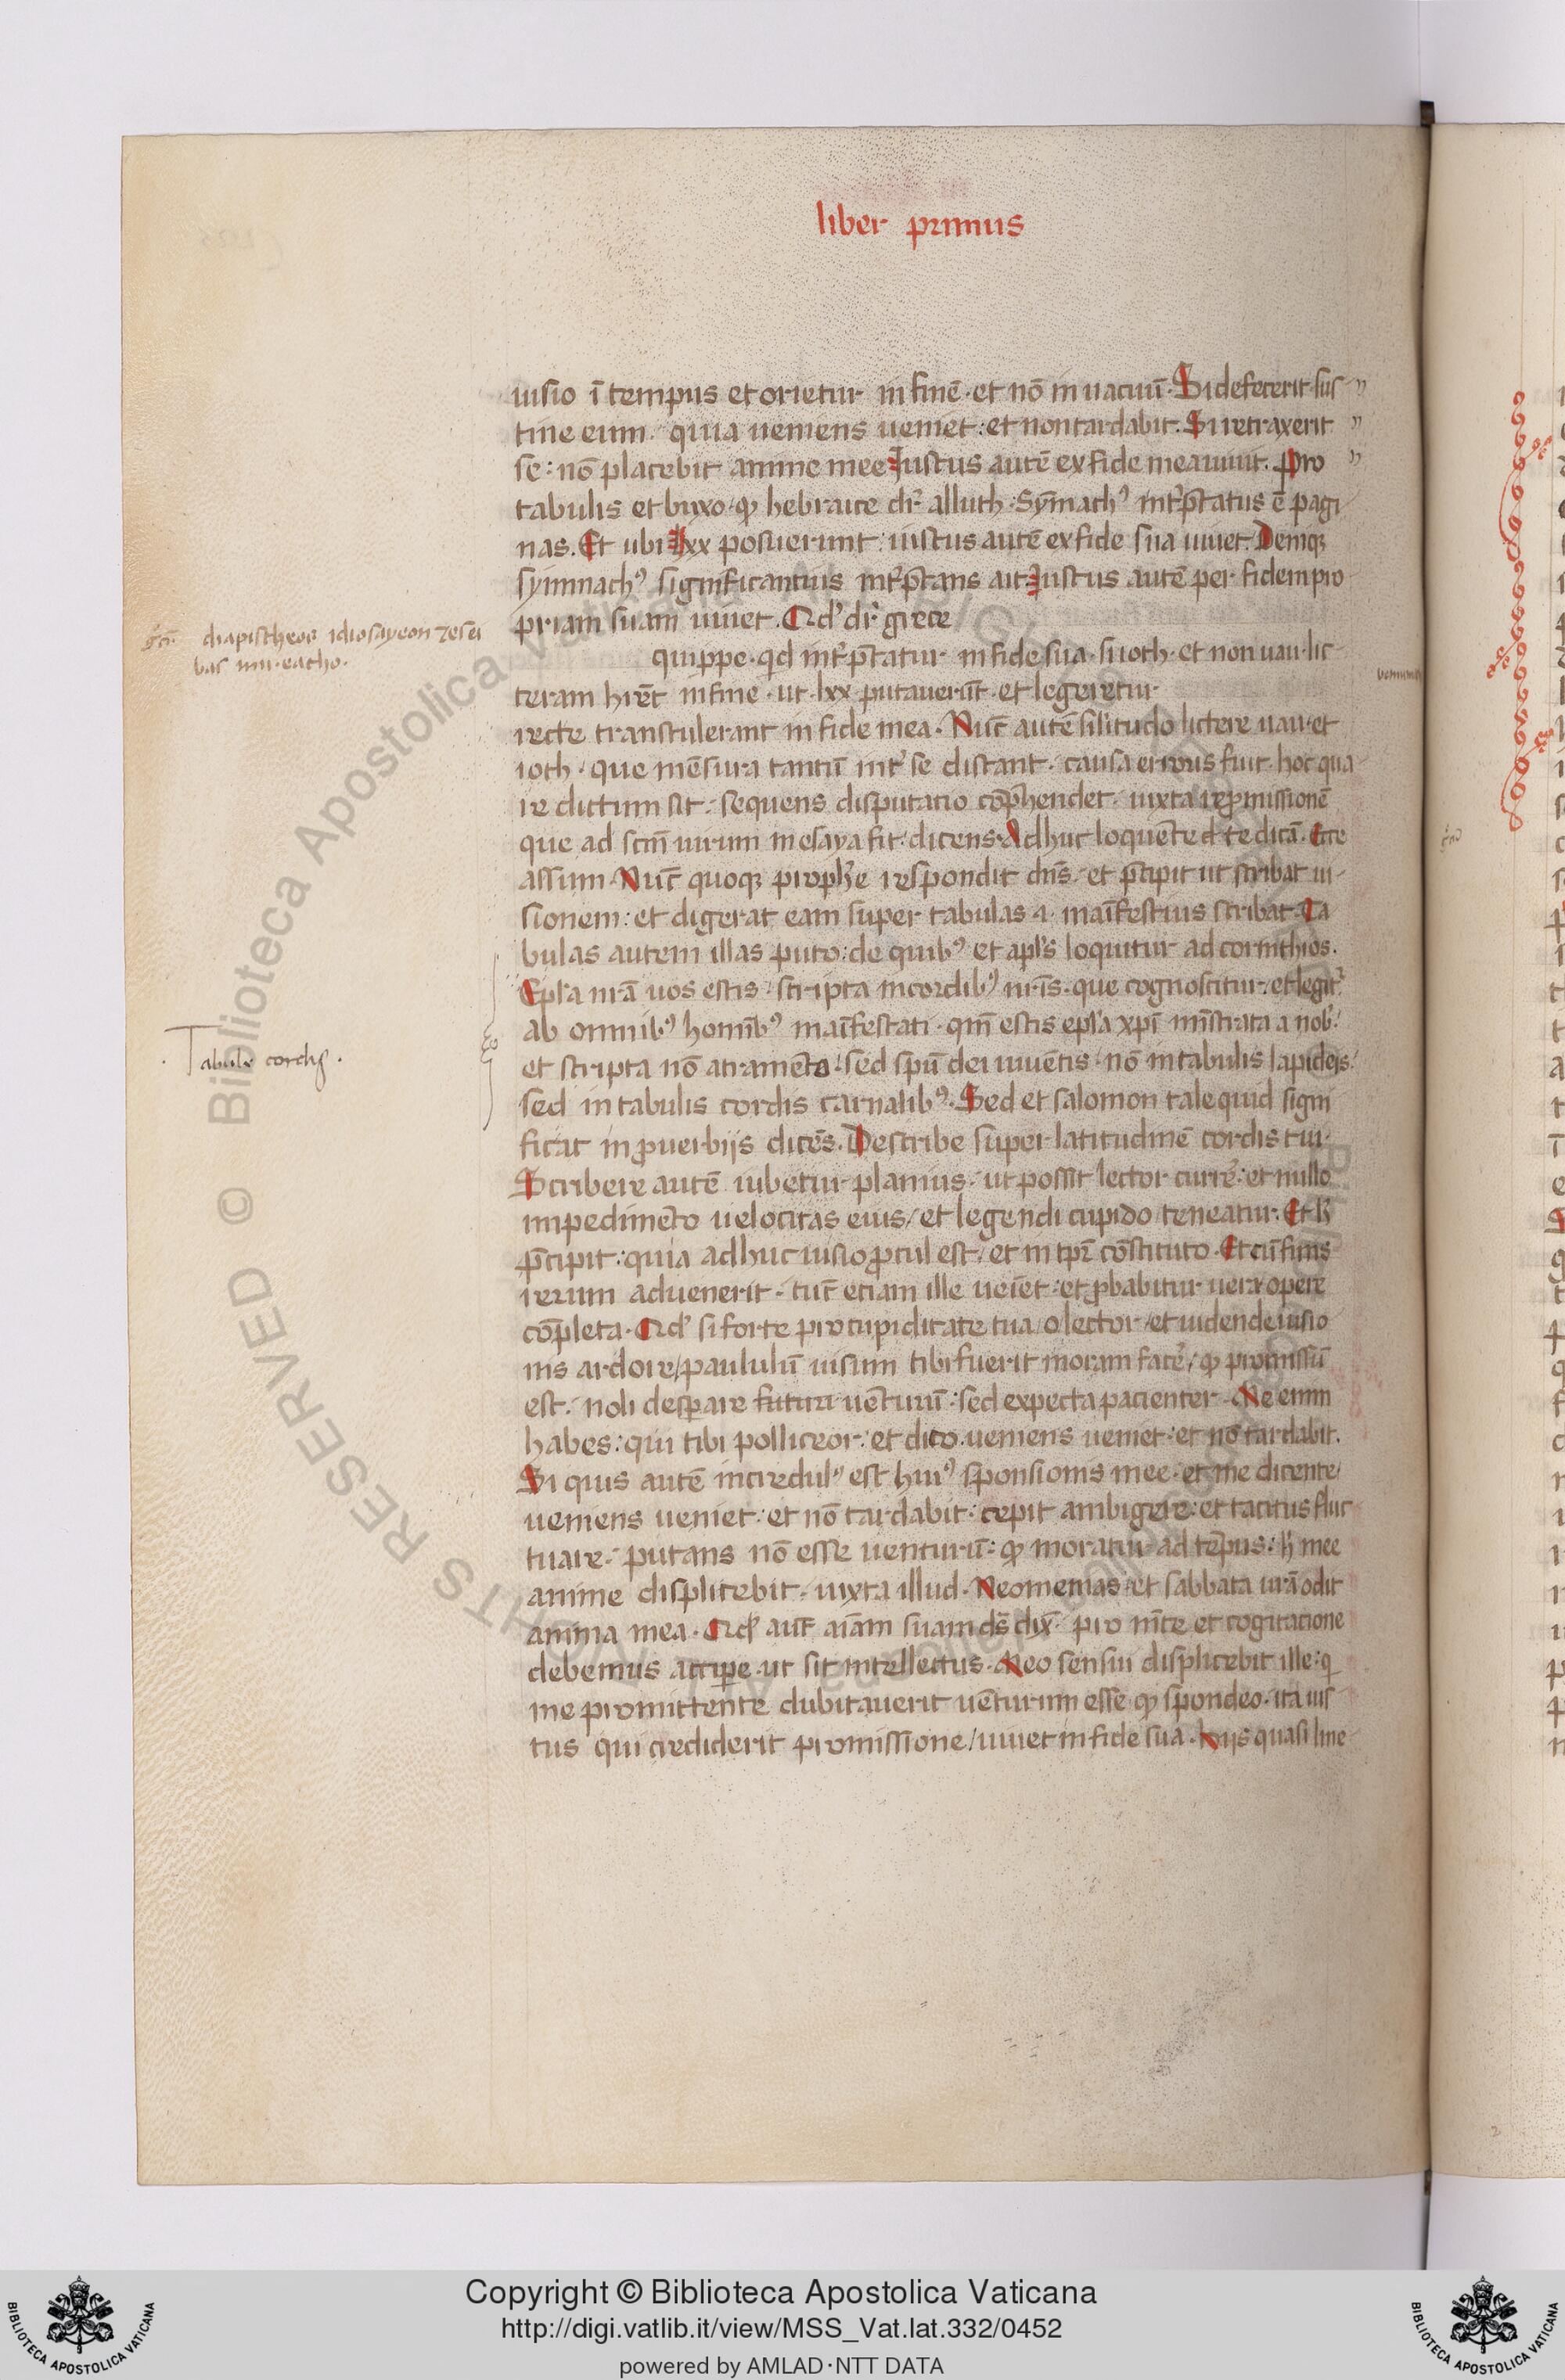 liber primus
uisio ī tempus et orietur in finē · et nō in uacuū · Si defecerit · sus
tine eum · quia ueniens ueniet : et non tardabit. Si retraxerit
se : nō placebit anime mee Justus autē ex fide mea uiuit. Pro
tabulis et buxo · ꝙ hebraice dr̄ alluth · Sȳmachꝰ int͛p̄tatus ē pagi
nas. Et ubi lxx posuerunt : iustus autē ex fide sua uiuet. Deniqꝫ
symmachꝰ significantius int͛p̄tans ait Justus autē per fidem pro
priam suam uiuet. Qd͛ dr̄ grece
gr̄. diapistheos idiosayeon zesei
bac nu · eacho ·
quippe · qd int͛p̄tatur in fide sua · si ioth · et non uau · lit
teram hr̄et in fine · ut lxx putauerūt · et legeretur
recte transtulerant in fide mea · Nūc autē sil̓itudo lictere uau · et
ioth · que mēsura tantū int͛ se distant · causa erroris fuit · hoc qua
re dictum sit · sequens disputatio cōp̄hendet · iuxta repromissionē
que ad scm̄ uirum in esaya fit · dicens · Adhuc loquēte d̄ te dicā · Ecce
assum · Nūc quoqꝫ prophe respondit dn̄s · et p̄cipit ut scribat ui
sionem : et digerat eam super tabulas ·i· māifestius scribat · Ta
bulas autem illas puto : de quibꝰ et apl̓s loquitur ad corinthios.
Epl̓a nr̄a uos estis · scripta in cordibꝰ nr̄is · que cognoscitur · et legit͛
ab omnibꝰ homībꝰ māifestati · qm̄ estis epl̓a xp̄i mīstrata a nob̓
et scripta nō atramēto · sed spū dei uiuētis · nō in tabulis lapideis ·
· Tabule cordis ·
sed in tabulis cordis carnalibꝰ · Sed et salomon tale quid signi
ficat in ꝓuerbijs dicēs. Describe super latitudinē cordis tui
Scribere autē iubetur planius · ut possit lector curre͛ · et nullo
impedimēto uelocitas eius / et legendi cupido teneatur. Et h̓
p̄cipit : quia adhuc uisio ꝓcul est / et in tp̄r cōstituto · Et cū finis
rerum aduenerit · tūc etiam ille ueiēt : et ꝓbabitur uera opere
cōpleta · Qd͛ si forte pro cupiditate tua / o lector / et uidende uisio
nis ardore / paululū uisum tibi fuerit moram face͛ / ꝙ promissū
est · noli desꝑare futuri uēturū : sed expecta pacienter · Me enim
habes : qui tibi polliceor · et dico · ueniens ueniet · et nō tardabit.
Si quis autē incredulꝰ est huiꝰ sponsionis mee · et me dicente
ueniens ueniet : et nō tardabit : cepit ambigere : et tacitus fluc
tuare · putans nō esse uenturū : ꝙ moratur ad tēpus : h̓ mee
anime displicebit · iuxta illud · Neomenias et sabbata ur̄a odit
anima mea · Qd͛ aut̄ aīam suam ds̄ dix̄ · pro mēte et cogitatione
debemus accipe · ut sit intellectus · Meo sensui displicebit ille : q
me promittente dubitauerit uēturum esse ꝙ spondeo · ita ius
tus qui crediderit promissione / uiuet in fide sua · Hijs quasi line
Copyright © Biblioteca Apostolica Vaticana
http://digi.vatlib.it/view/MSS_Vat.lat.332/0452
powered by AMLAD·NTT DATA